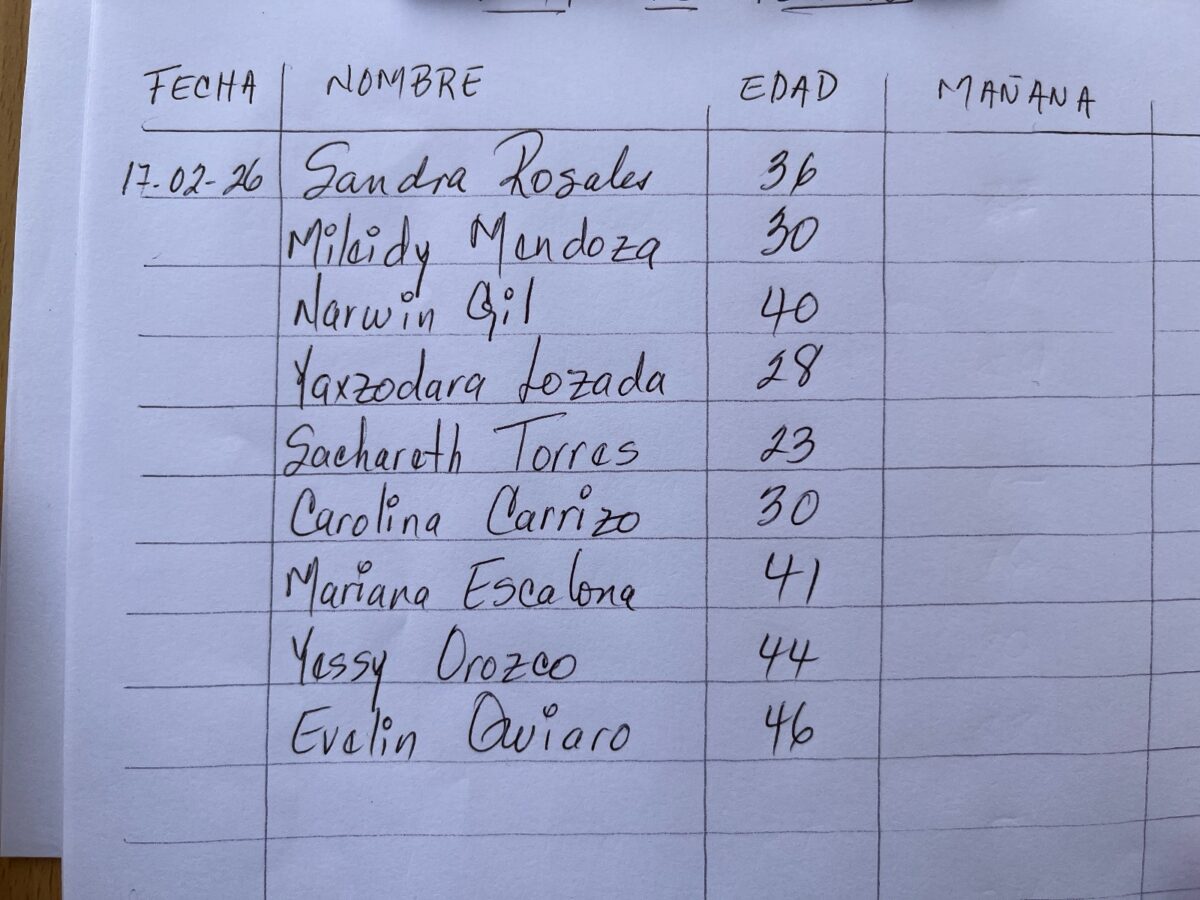 FECHA NOMBRE EDAD MAÑANA
17-02-26 Sandra Rosales 36
Mileidy Mendoza 30
Narwin Gil 40
Yaxzodara Lozada 28
Sachareth Torres 23
Carolina Carrizo 30
Mariana Escalona 41
Yessy Orozco 44
Evelin Quiaro 46